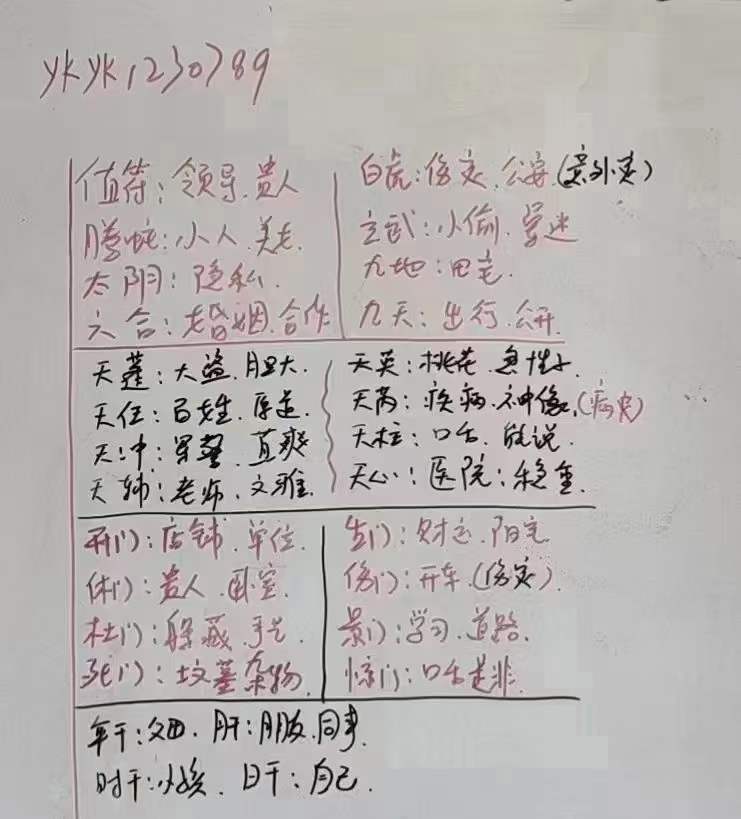 ykyk1230789
值符：领导.贵人 白虎：伤灾.公安(意外灾)
腾蛇：小人.美老 玄武：小偷.
太阴：隐私. 九地：田宅.
六合：婚姻.合作 九天：出行.公开.
天蓬：大盗.胆大. 天英：桃花.急性子.
天任：百姓.厚道. 天芮：疾病.神像.(病灾)
天冲：军警.直爽 天柱：口舌.能说.
天辅：老师.文雅. 天心：医院：稳重.
开门：店铺.单位. 生门：财运.阳宅
休门：贵人.卧室. 伤门：开车.(伤灾).
杜门：躲藏.手艺. 景门：学习.道路.
死门：坟墓杂物. 惊门：口舌是非.
年干：父母.月干：朋友.同事.
时干：小孩.日干：自己.